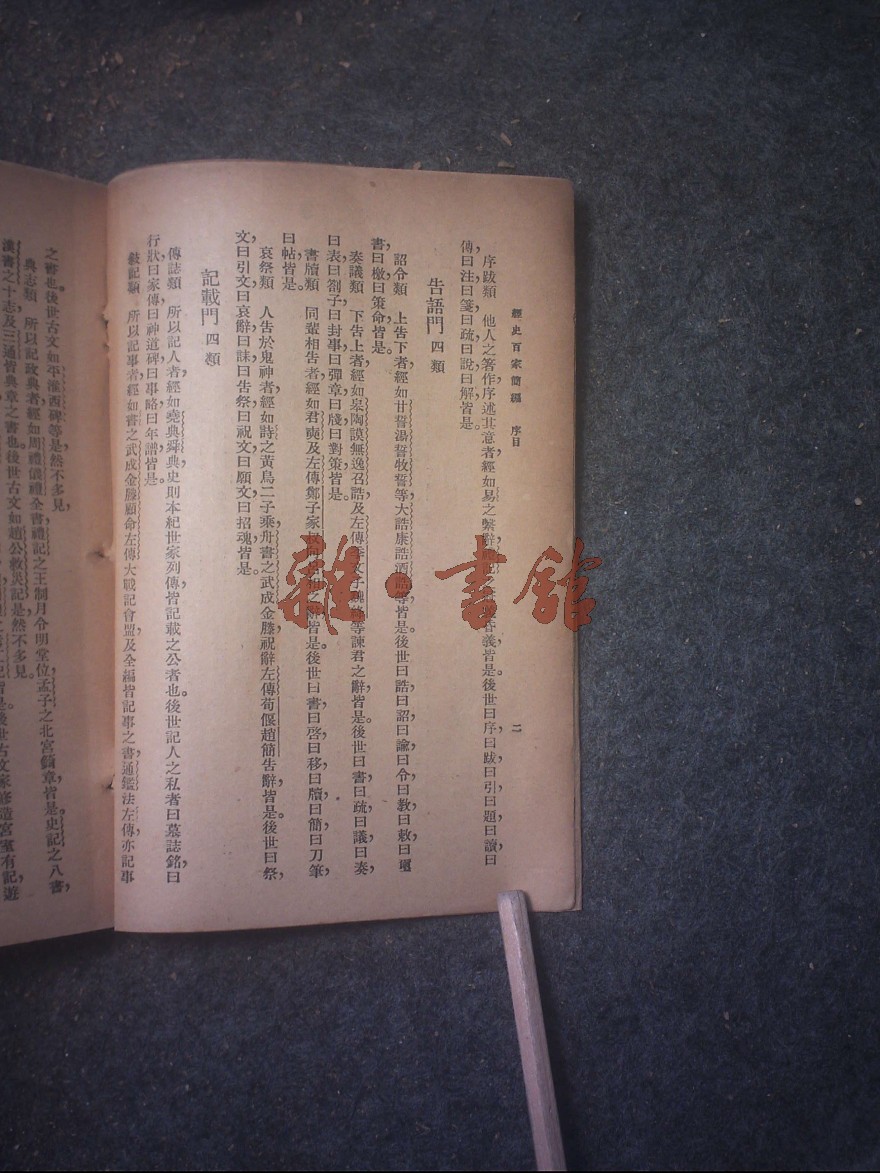 經史百家簡編 序目 二
序跋類 他人之著作序述其意者經如易之繫辭 昏義皆是。後世曰序曰跋曰引曰題曰讀曰
傳曰注曰箋曰疏曰說曰解皆是。
告語門 四類
詔令類 上告下者經如甘誓湯誓牧誓等大誥康誥酒誥等皆是。後世曰誥曰詔曰諭曰令曰教曰敕曰璽
書曰檄曰策命皆是。
奏議類 下告上者經如皋陶謨無逸召誥及左傳季文子魏絳等諫君之辭皆是。後世曰書曰疏曰議曰奏
曰表曰劄子曰封事曰彈章曰牋曰對策皆是。
書牘類 同輩相告者經如君奭及左傳鄭子家 之辭皆是。後世曰書曰啓曰移曰牘曰簡曰刀筆
曰帖皆是。
哀祭類 人告於鬼神者經如詩之黃鳥二子乘舟書之武成金縢祝辭左傳荀偃趙簡告辭皆是。後世曰祭
文曰引文曰哀辭曰誄曰告祭曰祝文曰願文曰招魂皆是。
記載門 四類
傳誌類 所以記人者經如堯典舜典史則本紀世家列傳皆記載之公者也。後世記人之私者曰墓誌銘曰
行狀曰家傳曰神道碑曰事略曰年譜皆是。
敍記類 所以記事者經如書之武成金縢顧命左傳大戰記會盟及全編皆記事之書通鑑法左傳亦記事
之書也。後世古文如平淮西碑等是然不多見。
典志類 所以記政典者經如周禮儀禮全書禮記之王制月令明堂位孟子之北宮錡章皆是。史記之八書，
漢書之十志及三通皆典章之書也。後世古文如趙公救災記是然不多見。
後世古文家修造宮室有記遊
雜·書館